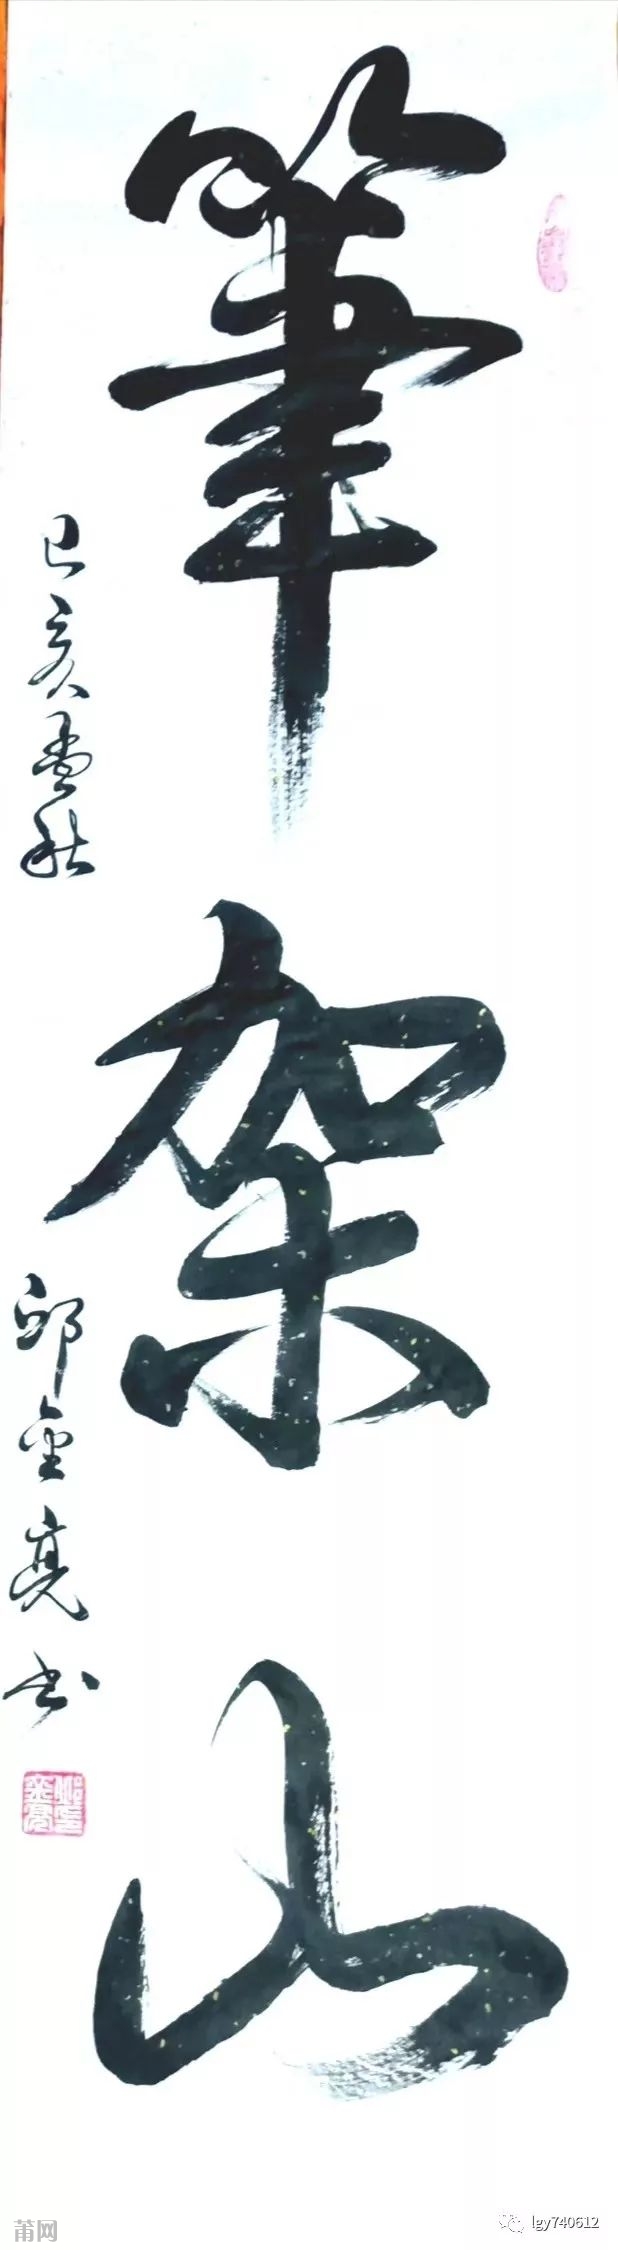 筆架山
己亥孟秋
邱金亮书
莆网
lgy740612